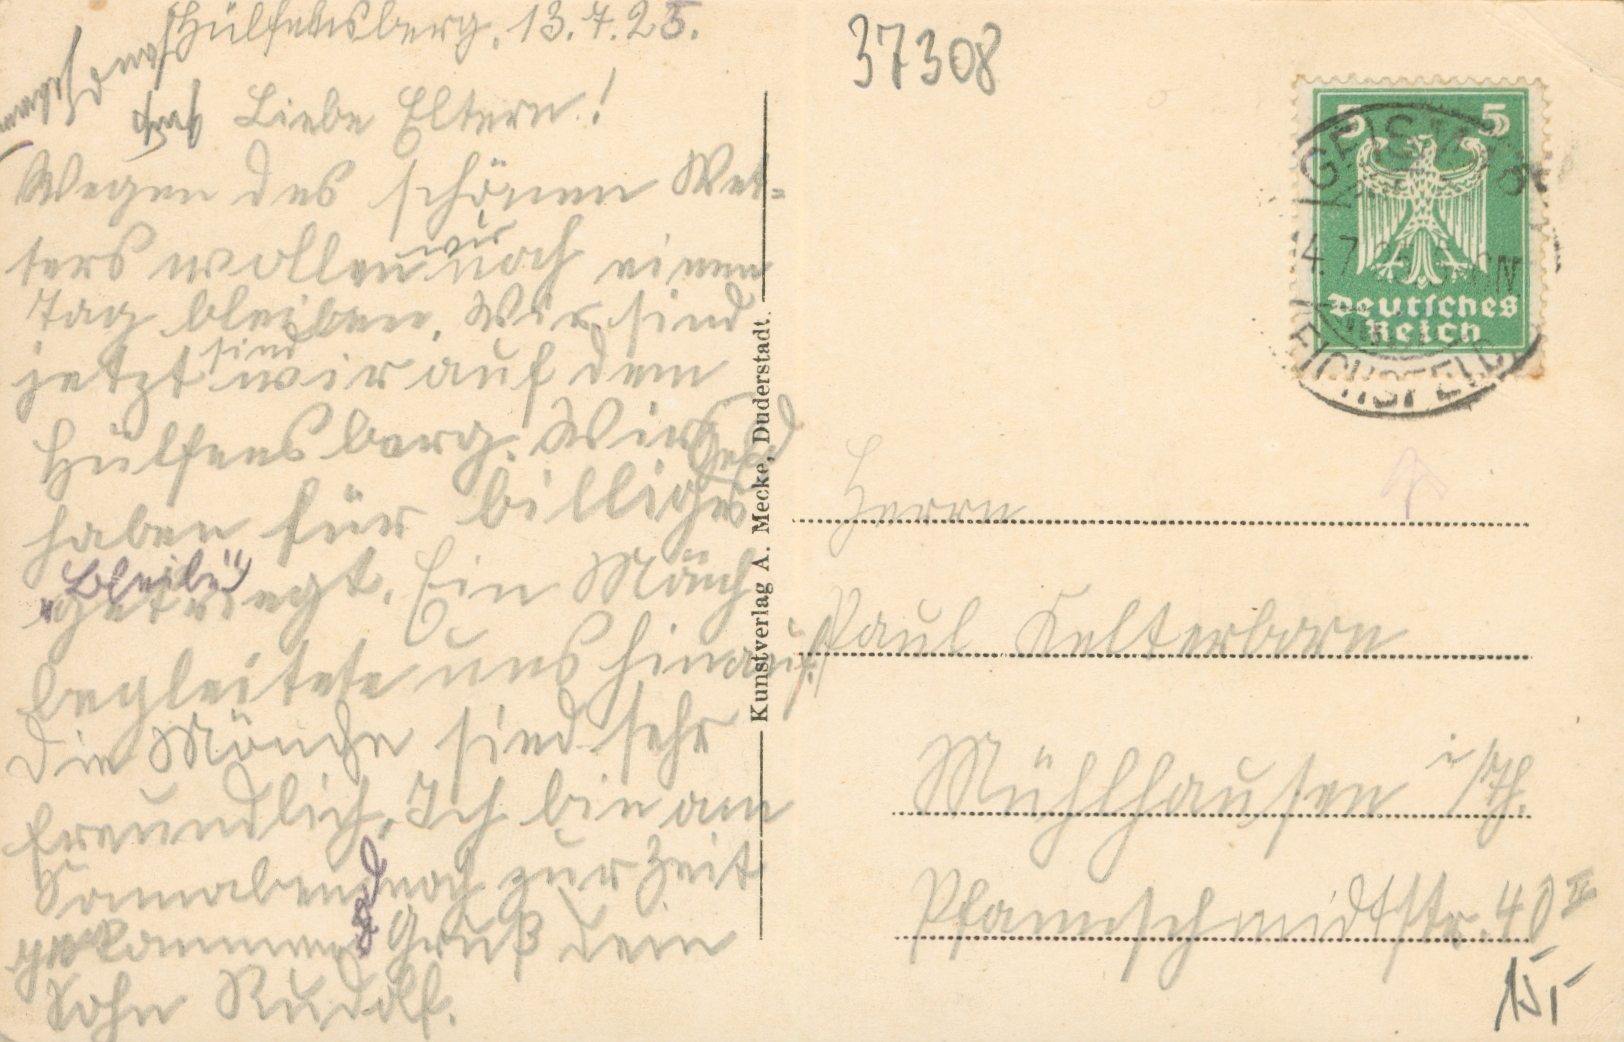 Hülfensberg, 13.7.25.
Liebe Eltern!
Wegen des schönen Wet-
ters wollen wir noch einen
Tag bleiben. Wir sind
jetzt sind wir auf dem
Hülfensberg. Wir
haben für billiges Geld
„Bleibe“
gekriegt. Ein Mönch
begleitete uns hinauf.
Die Mönche sind sehr
freundlich. Ich bin am
Sonnabend noch zur Zeit
gekommen. Gruß dein
Sohn Rudolf.
Kunstverlag A. Mecke, Duderstadt.
37308
5 5
Deutsches
Reich
EICHSFELD
Herrn
Paul Kelterborn
Mühlhausen i/Th.
Pfannschmidtstr. 40 II
15,-